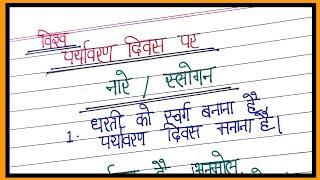 विश्व
पर्यावरण दिवस पर
नारे / स्लोगन
1. धरती को स्वर्ग बनाना है
पर्यावरण दिवस मनाना है।
है अनमोल